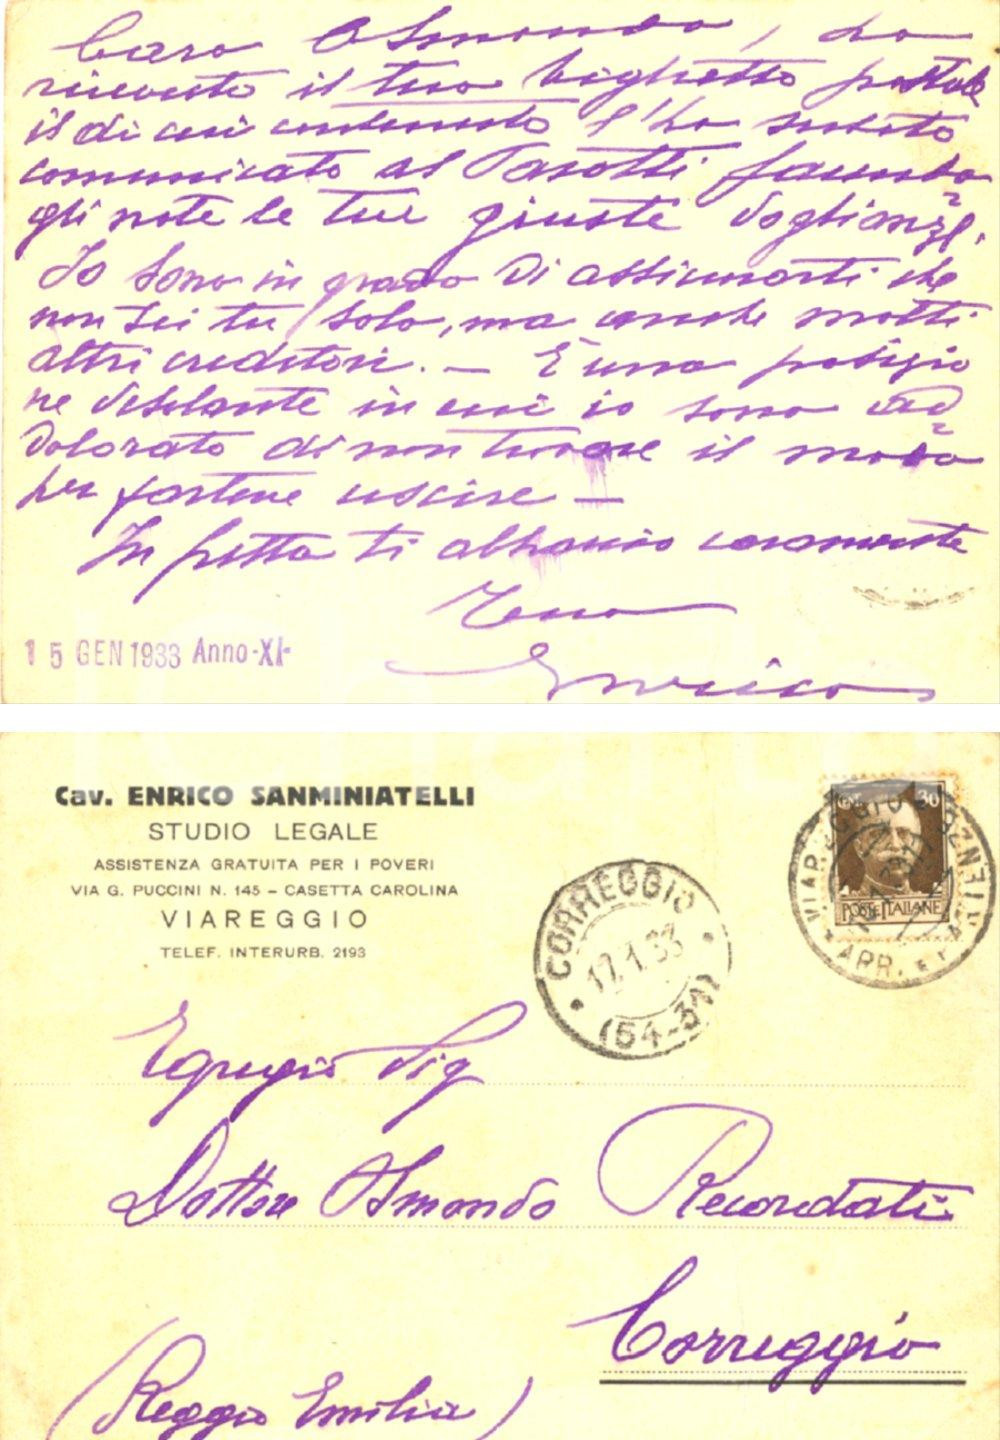 Caro Osmondo, ho
ricevuto il tuo biglietto postale
il di cui contenuto l'ho subito
comunicato al Pasotti facendo
gli note le tue giuste doglianze.
Io sono in grado di assicurarti che
non sei tu solo, ma anche molti
altri creditori. — È una posizio
ne desolante in cui io sono ad
dolorato di non trovare il modo
per fartene uscire —
In fretta ti abbraccio caramente
Tuo
Enrico
15 GEN 1933 Anno-XI-
Cav. ENRICO SANMINIATELLI
STUDIO LEGALE
ASSISTENZA GRATUITA PER I POVERI
VIA G. PUCCINI N. 145 – CASETTA CAROLINA
VIAREGGIO
TELEF. INTERURB. 2193
CORREGGIO
17.1.33
(54-31)
30
POSTE ITALIANE
VIAREGGIO
ARR.
Egregio Sig
Dottore Osmondo Recordati
Correggio
(Reggio Emilia)